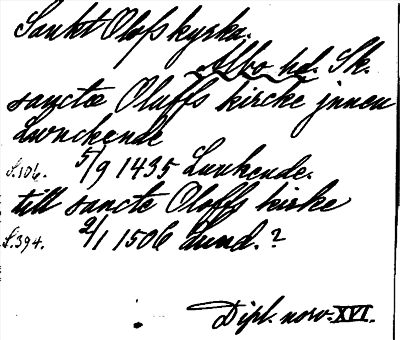 Sankt Olofs kyrka.
Albo hd. Sk.
sanctæ Oluffs kircke jnnen
Lwnckende
S.106. 5/9 1435 Lunkende.
till sancte Oloffs kirke
S.394. 2/1 1506 Lund.?
Dipl. norv. XVI.